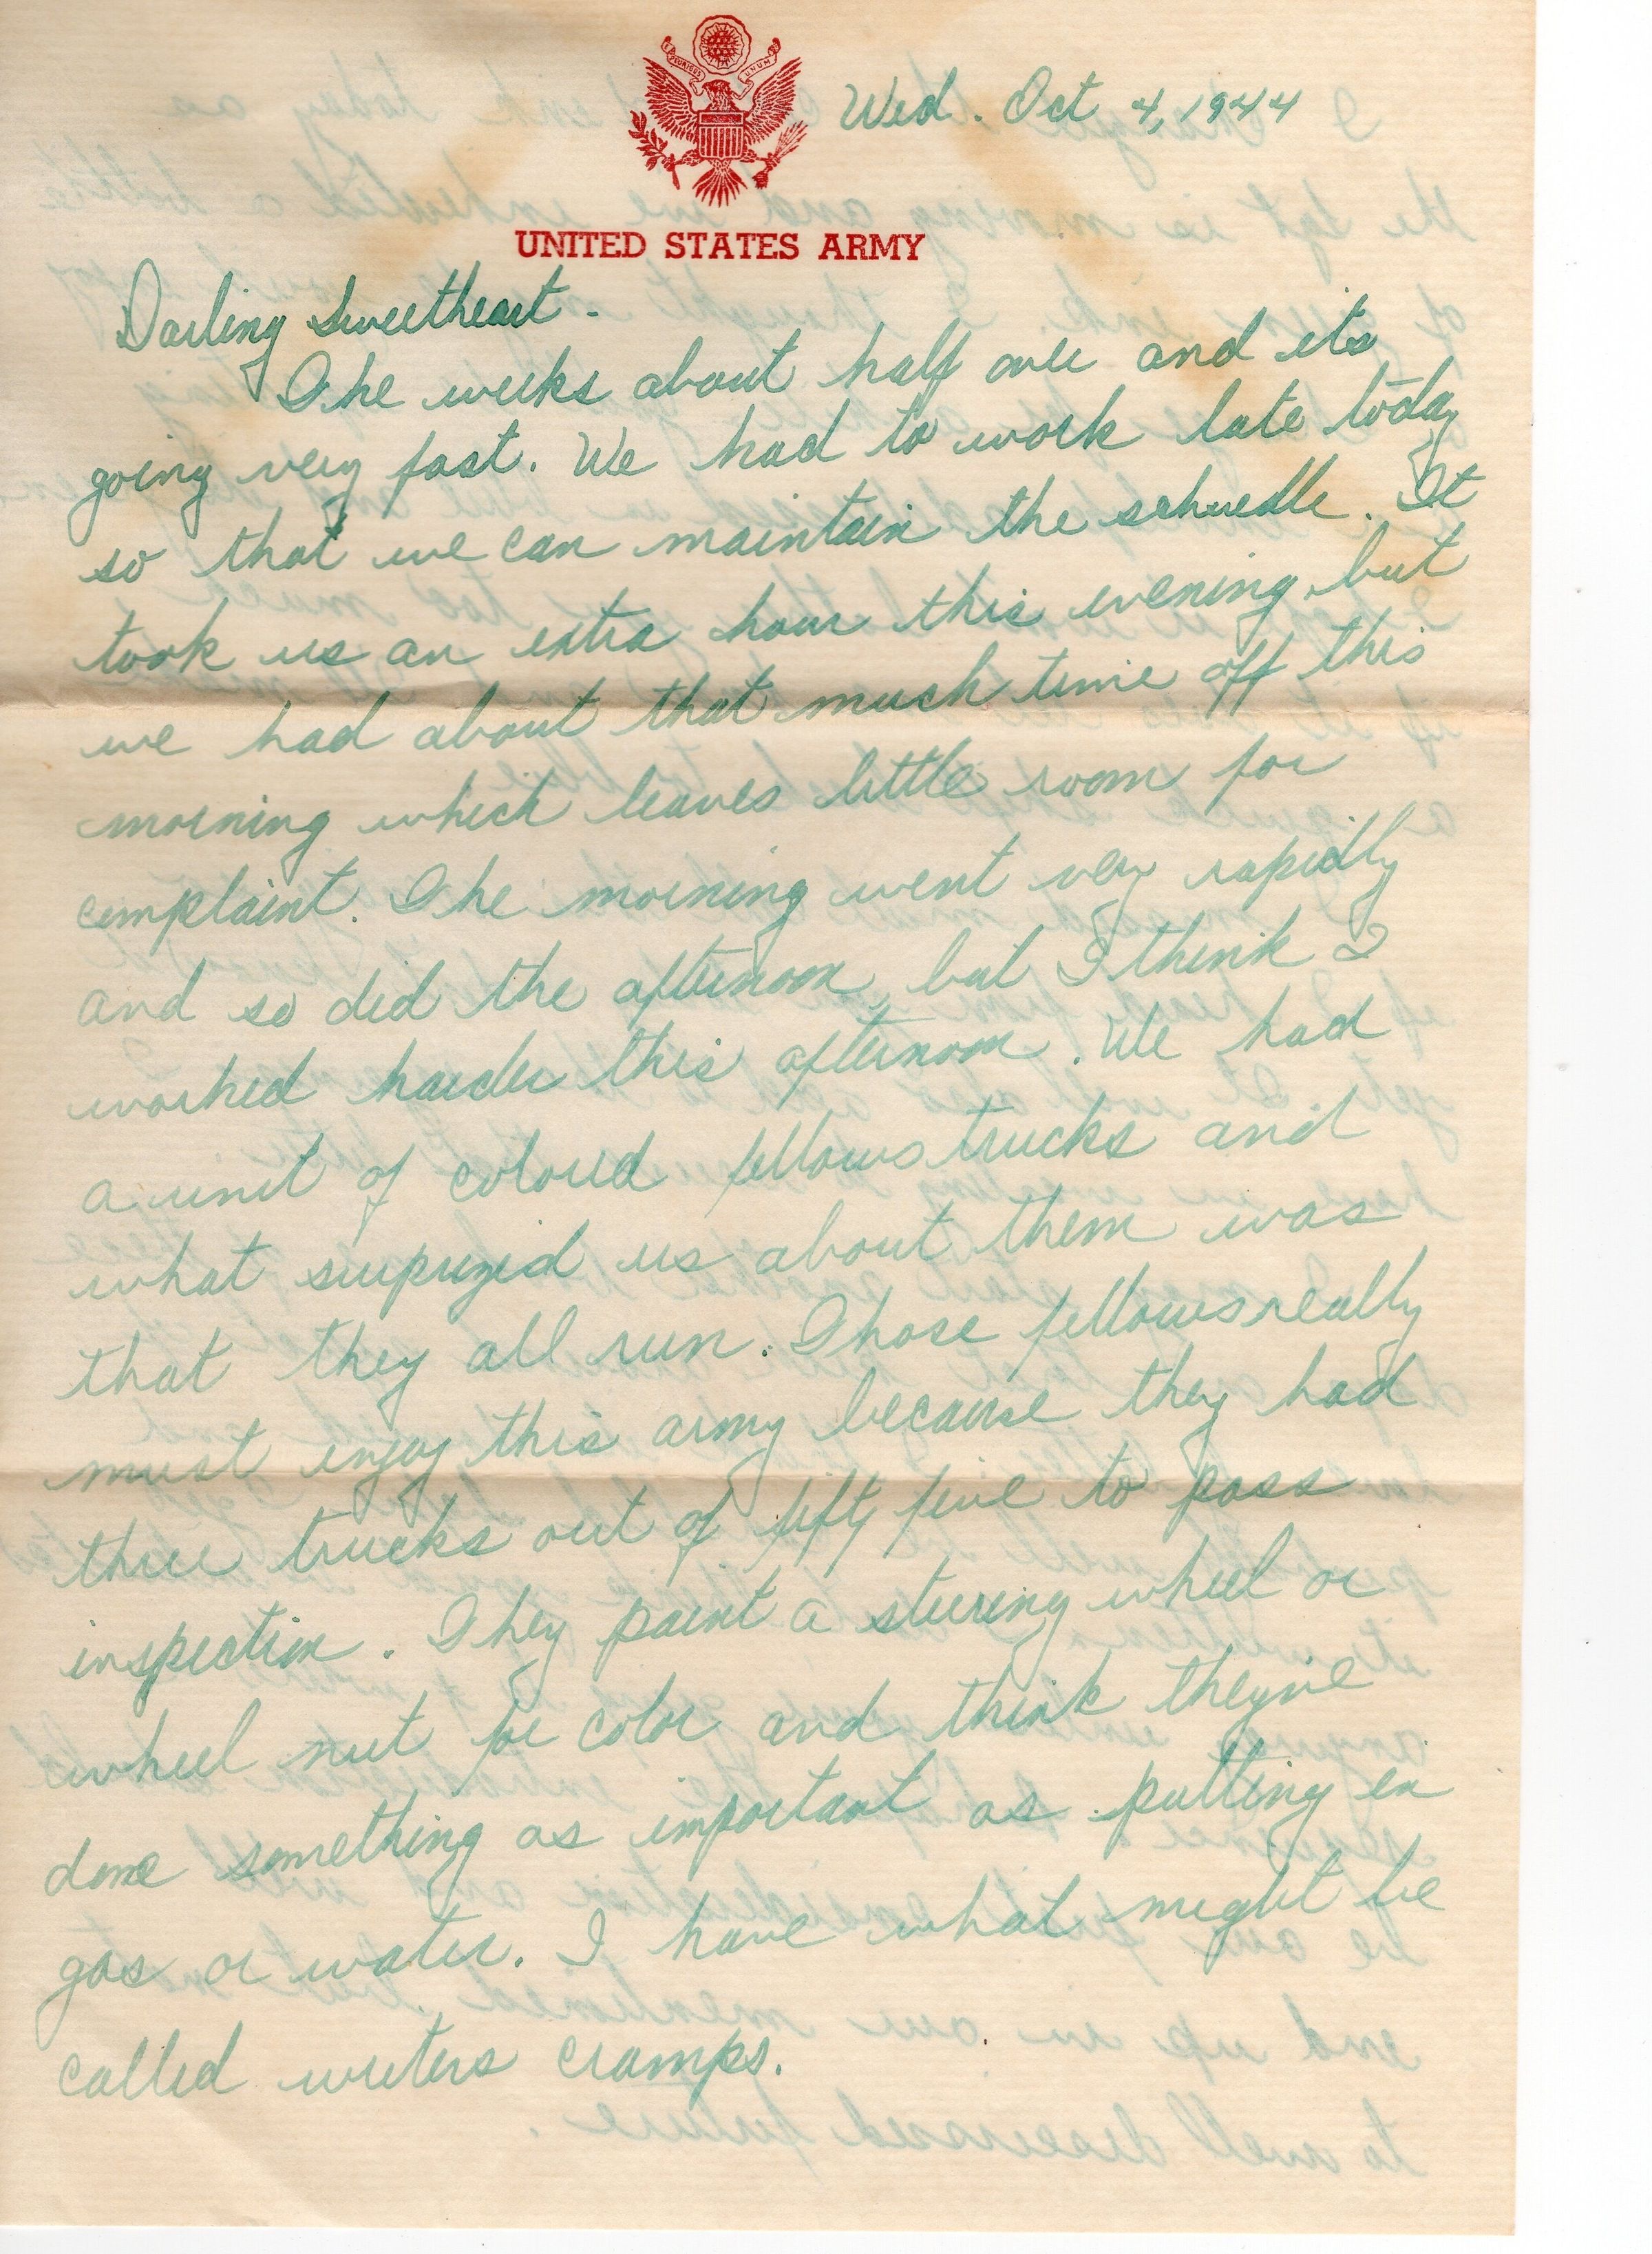 E PLURIBUS UNUM
Wed. Oct 4, 1944
UNITED STATES ARMY
Darling Sweetheart.
The weeks about half over and its
going very fast. We had to work late today
so that we can maintain the schuedle. It
took us an extra hour this evening but
we had about that much time off this
morning which leaves little room for
complaint. The morning went very rapidly
and so did the afternoon, but I think I
worked harder this afternoon. We had
a unit of colored fellows trucks and
what suprized us about them was
that they all run. Those fellows really
must enjoy this army because they had
three trucks out of fifty five to pass
inspection. They paint a steering wheel or
wheel nut for color and think they've
done something as important as putting in
gas or water. I have what might be
called writers cramps.